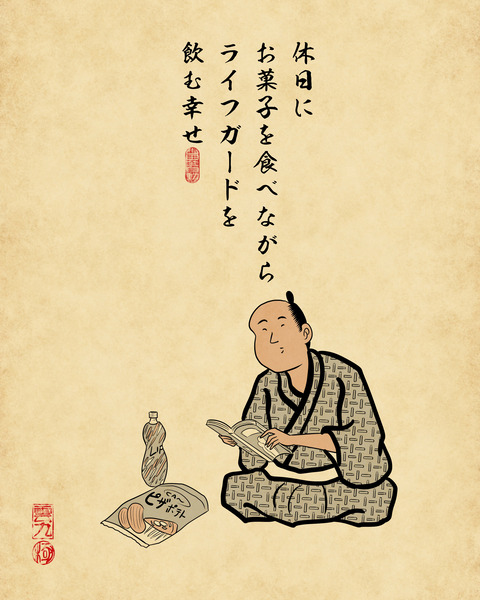 休日に
お菓子を食べながら
ライフガードを
飲む幸せ
LIF
ピザポテト